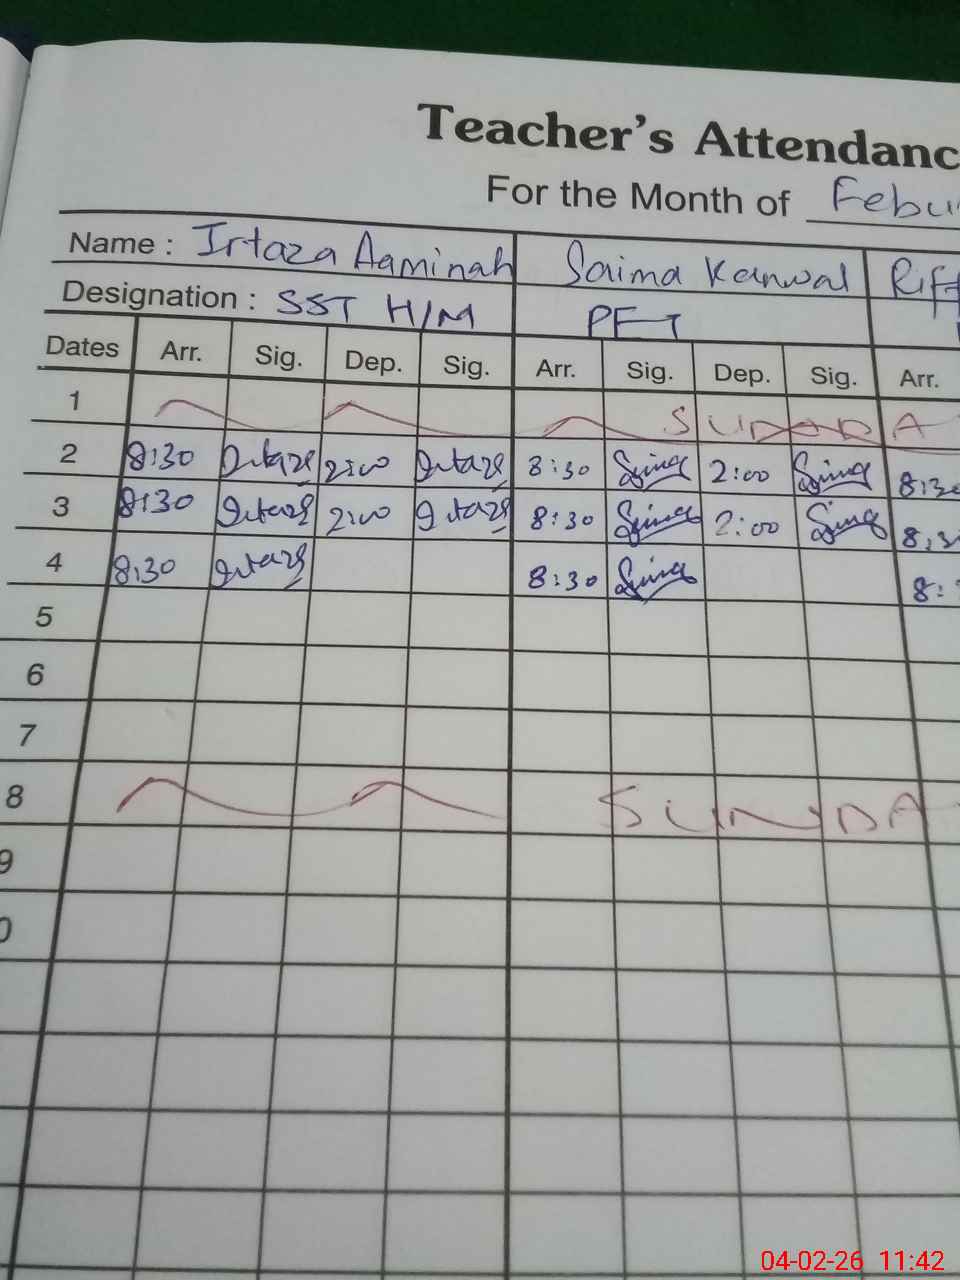 Teacher's Attendanc
For the Month of Febu
Name : Irtaza Aaminah Saima Kanwal Riff
Designation : SST H/M PET
Dates Arr. Sig. Dep. Sig. Arr. Sig. Dep. Sig. Arr.
1 SUNDA
2 8:30 Irtaza 2:00 Irtaza 8:30 Saima 2:00 Saima 8:30
3 8:30 Irtaza 2:00 Irtaza 8:30 Saima 2:00 Saima 8:3
4 8:30 Irtaza 8:30 Saima 8:
5
6
7
8 SUNDA
9
0
04-02-26 11:42